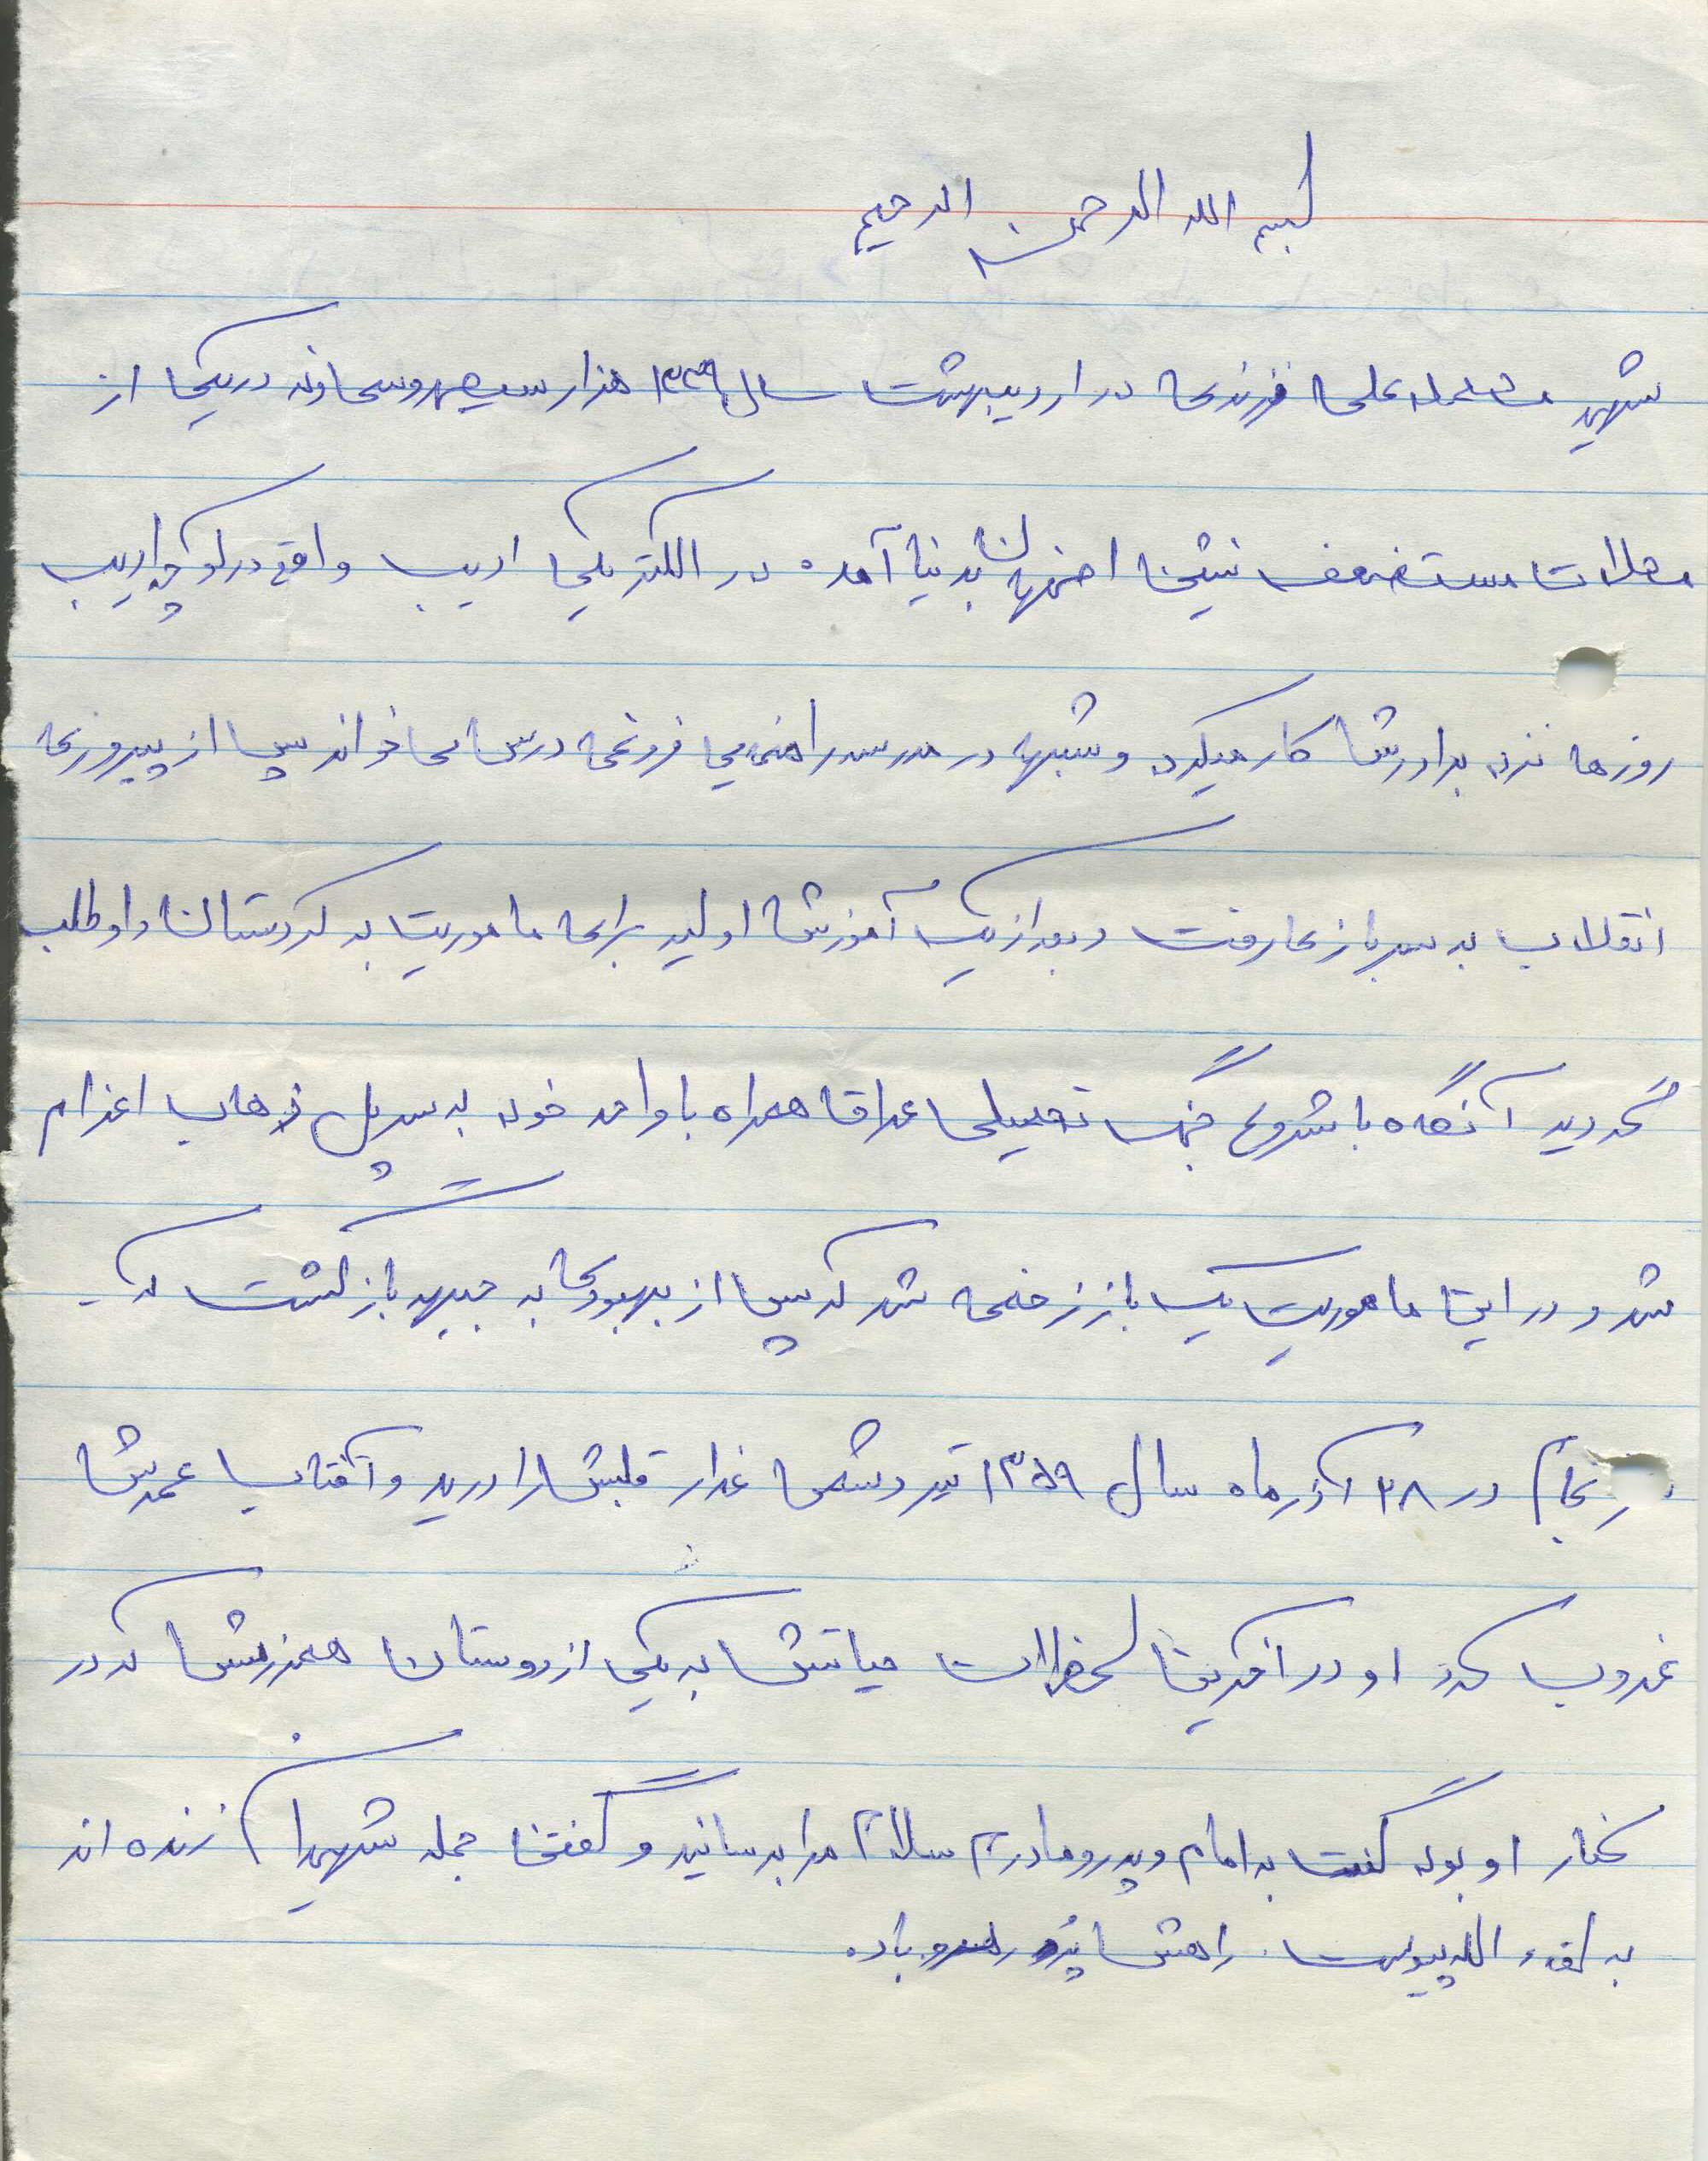 بسم الله الرحمن الرحیم
شهید علی فرزندی در اردیبهشت سال ۱۳۳۹ هزار سیصدوسی ونه در یکی از
محلات مستضعف نشین اصفهان بدنیا آمده در الکتریکی ادیب واقع در کوچه ادیب
روزها نزد برادرش کار میکرد و شبها در مدرسه راهنمایی فروغی درس می خواند پس از پیروزی
انقلاب به سربازی رفت و بعد از یک آموزش اولیه برای ماموریت به کردستان داوطلب
گردید آنگاه با شروع جنگ تحمیلی عراق همراه با واحد خود به سرپل ذهاب اعزام
شد و در این ماموریت یک بار زخمی شد که پس از بهبودی به جبهه بازگشت که
سرنجام در ۲۸ آذر ماه سال ۱۳۵۹ تیر دشمن غدار قلبش را درید و آفتاب عمرش
غروب کرد او در آخرین لحظات حیاتش به یکی از دوستان همرزمش که در
کنار او بود گفت به امام و پدر و مادرم سلام مرا برسانید و گفتن جمله شهیدان زنده اند
به لقاء الله پیوست. راهش پر رهرو باد.